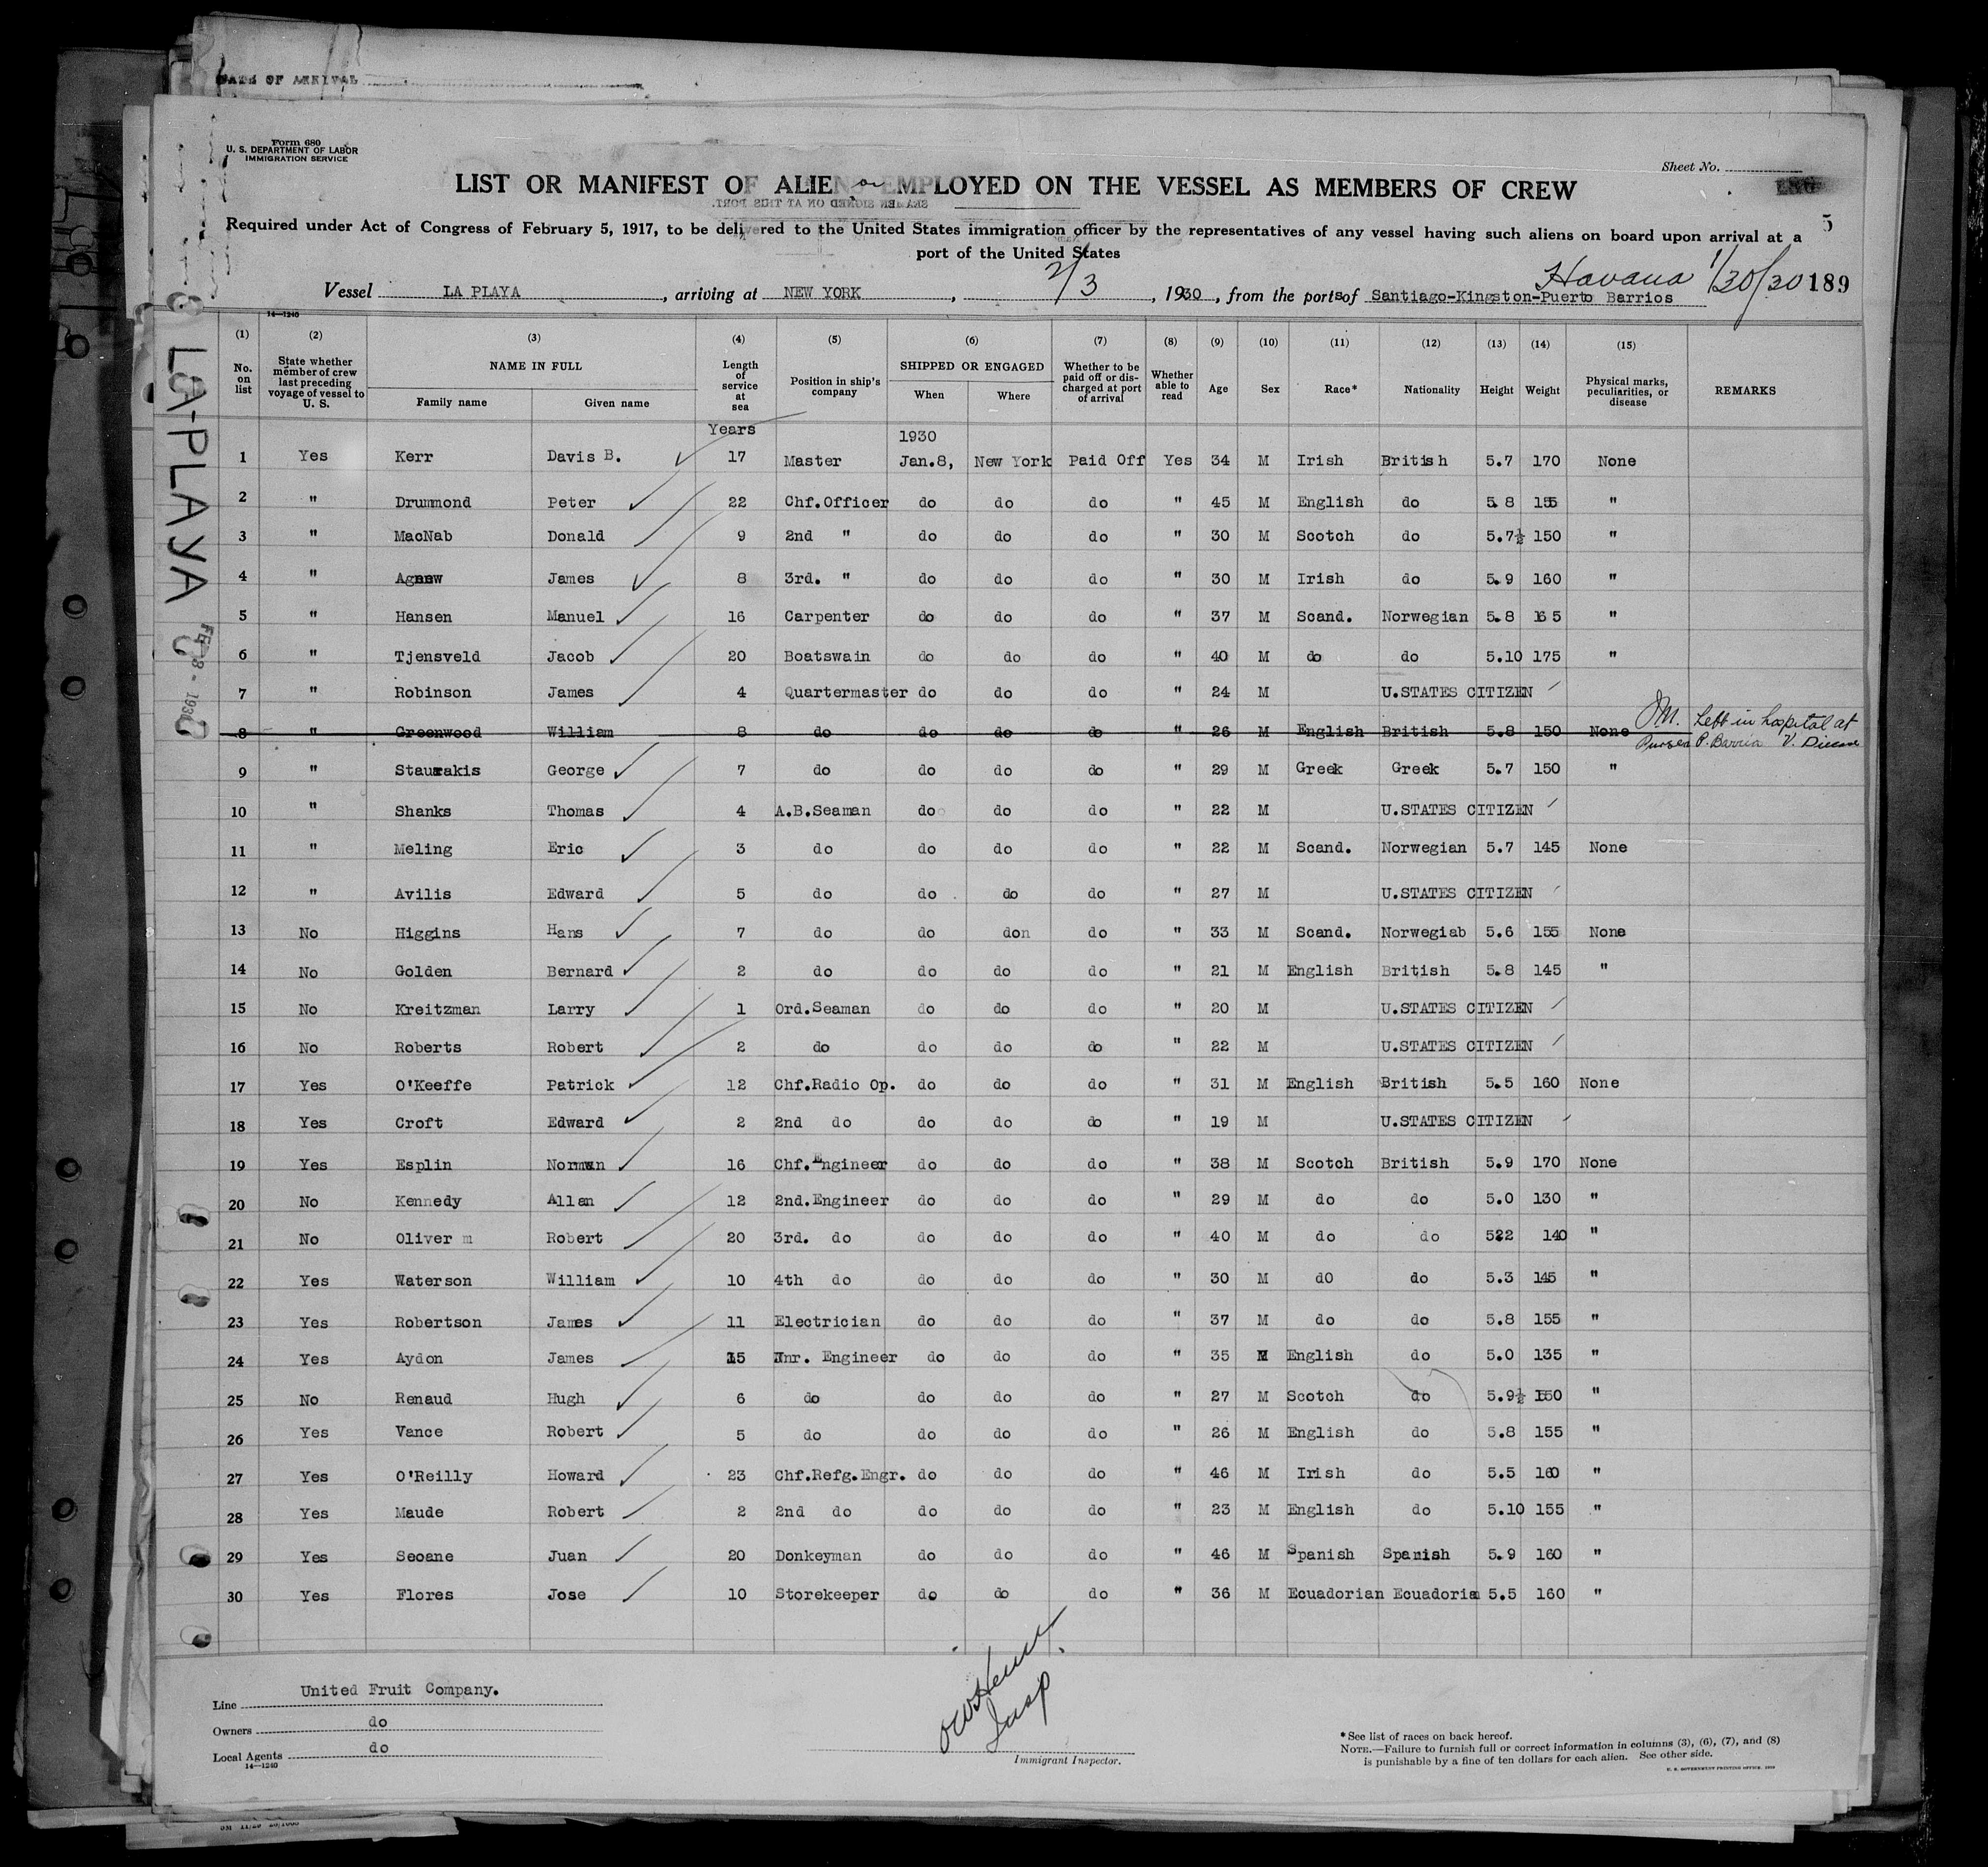 DATE OF ARRIVAL
Form 680
U. S. DEPARTMENT OF LABOR
IMMIGRATION SERVICE
Sheet No.
LIST OR MANIFEST OF ALIENS EMPLOYED ON THE VESSEL AS MEMBERS OF CREW
SEAMEN SIGNED ON AT THIS PORT.
5
Required under Act of Congress of February 5, 1917, to be delivered to the United States immigration officer by the representatives of any vessel having such aliens on board upon arrival at a
port of the United States
Havana 1/30/30 189
Vessel LA PLAYA, arriving at NEW YORK, 2/3, 1930, from the ports of Santiago-Kingston-Puerto Barrios
14—1240
(1) (2) (3) (4) (5) (6) (7) (8) (9) (10) (11) (12) (13) (14) (15)
No. on list State whether member of crew last preceding voyage of vessel to U. S. NAME IN FULL Family name Given name Length of service at sea Position in ship's company SHIPPED OR ENGAGED When Where Whether to be paid off or discharged at port of arrival Whether able to read Age Sex Race* Nationality Height Weight Physical marks, peculiarities, or disease REMARKS
Years 1930
1 Yes Kerr Davis B. 17 Master Jan.8, New York Paid Off Yes 34 M Irish British 5.7 170 None
2 " Drummond Peter 22 Chf.Officer do do do " 45 M English do 5.8 155 "
3 " MacNab Donald 9 2nd " do do do " 30 M Scotch do 5.7½ 150 "
4 " Agnew James 8 3rd. " do do do " 30 M Irish do 5.9 160 "
5 " Hansen Manuel 16 Carpenter do do do " 37 M Scand. Norwegian 5.8 165 "
6 " Tjensveld Jacob 20 Boatswain do do do " 40 M do do 5.10 175 "
7 " Robinson James 4 Quartermaster do do do " 24 M U.STATES CITIZEN
8 " Greenwood William 8 do do do do " 26 M English British 5.8 150 None Left in hospital at
Purser P. Barrios V. Disease
9 " Staurakis George 7 do do do do " 29 M Greek Greek 5.7 150 "
10 " Shanks Thomas 4 A.B.Seaman do do do " 22 M U.STATES CITIZEN
11 " Meling Eric 3 do do do do " 22 M Scand. Norwegian 5.7 145 None
12 " Avilis Edward 5 do do do do " 27 M U.STATES CITIZEN
13 No Higgins Hans 7 do do don do " 33 M Scand. Norwegiab 5.6 155 None
14 No Golden Bernard 2 do do do do " 21 M English British 5.8 145 "
15 No Kreitzman Larry 1 Ord.Seaman do do do " 20 M U.STATES CITIZEN
16 No Roberts Robert 2 do do do do " 22 M U.STATES CITIZEN
17 Yes O'Keeffe Patrick 12 Chf.Radio Op. do do do " 31 M English British 5.5 160 None
18 Yes Croft Edward 2 2nd do do do do " 19 M U.STATES CITIZEN
19 Yes Esplin Norman 16 Chf.Engineer do do do " 38 M Scotch British 5.9 170 None
20 No Kennedy Allan 12 2nd.Engineer do do do " 29 M do do 5.0 130 "
21 No Oliver m Robert 20 3rd. do do do do " 40 M do do 522 140 "
22 Yes Waterson William 10 4th do do do do " 30 M dO do 5.3 145 "
23 Yes Robertson James 11 Electrician do do do " 37 M do do 5.8 155 "
24 Yes Aydon James 15 Jnr. Engineer do do do " 35 M English do 5.0 135 "
25 No Renaud Hugh 6 do do do do " 27 M Scotch do 5.9½ 150 "
26 Yes Vance Robert 5 do do do do " 26 M English do 5.8 155 "
27 Yes O'Reilly Howard 23 Chf.Refg.Engr. do do do " 46 M Irish do 5.5 160 "
28 Yes Maude Robert 2 2nd do do do do " 23 M English do 5.10 155 "
29 Yes Seoane Juan 20 Donkeyman do do do " 46 M Spanish Spanish 5.9 160 "
30 Yes Flores Jose 10 Storekeeper do do do " 36 M Ecuadorian Ecuadoria 5.5 160 "
LA-PLAYA
Line United Fruit Company.
Owners do
Local Agents do
14—1240
Insp
Immigrant Inspector.
* See list of races on back hereof.
NOTE.—Failure to furnish full or correct information in columns (3), (6), (7), and (8)
is punishable by a fine of ten dollars for each alien. See other side.
U. S. GOVERNMENT PRINTING OFFICE: 1929